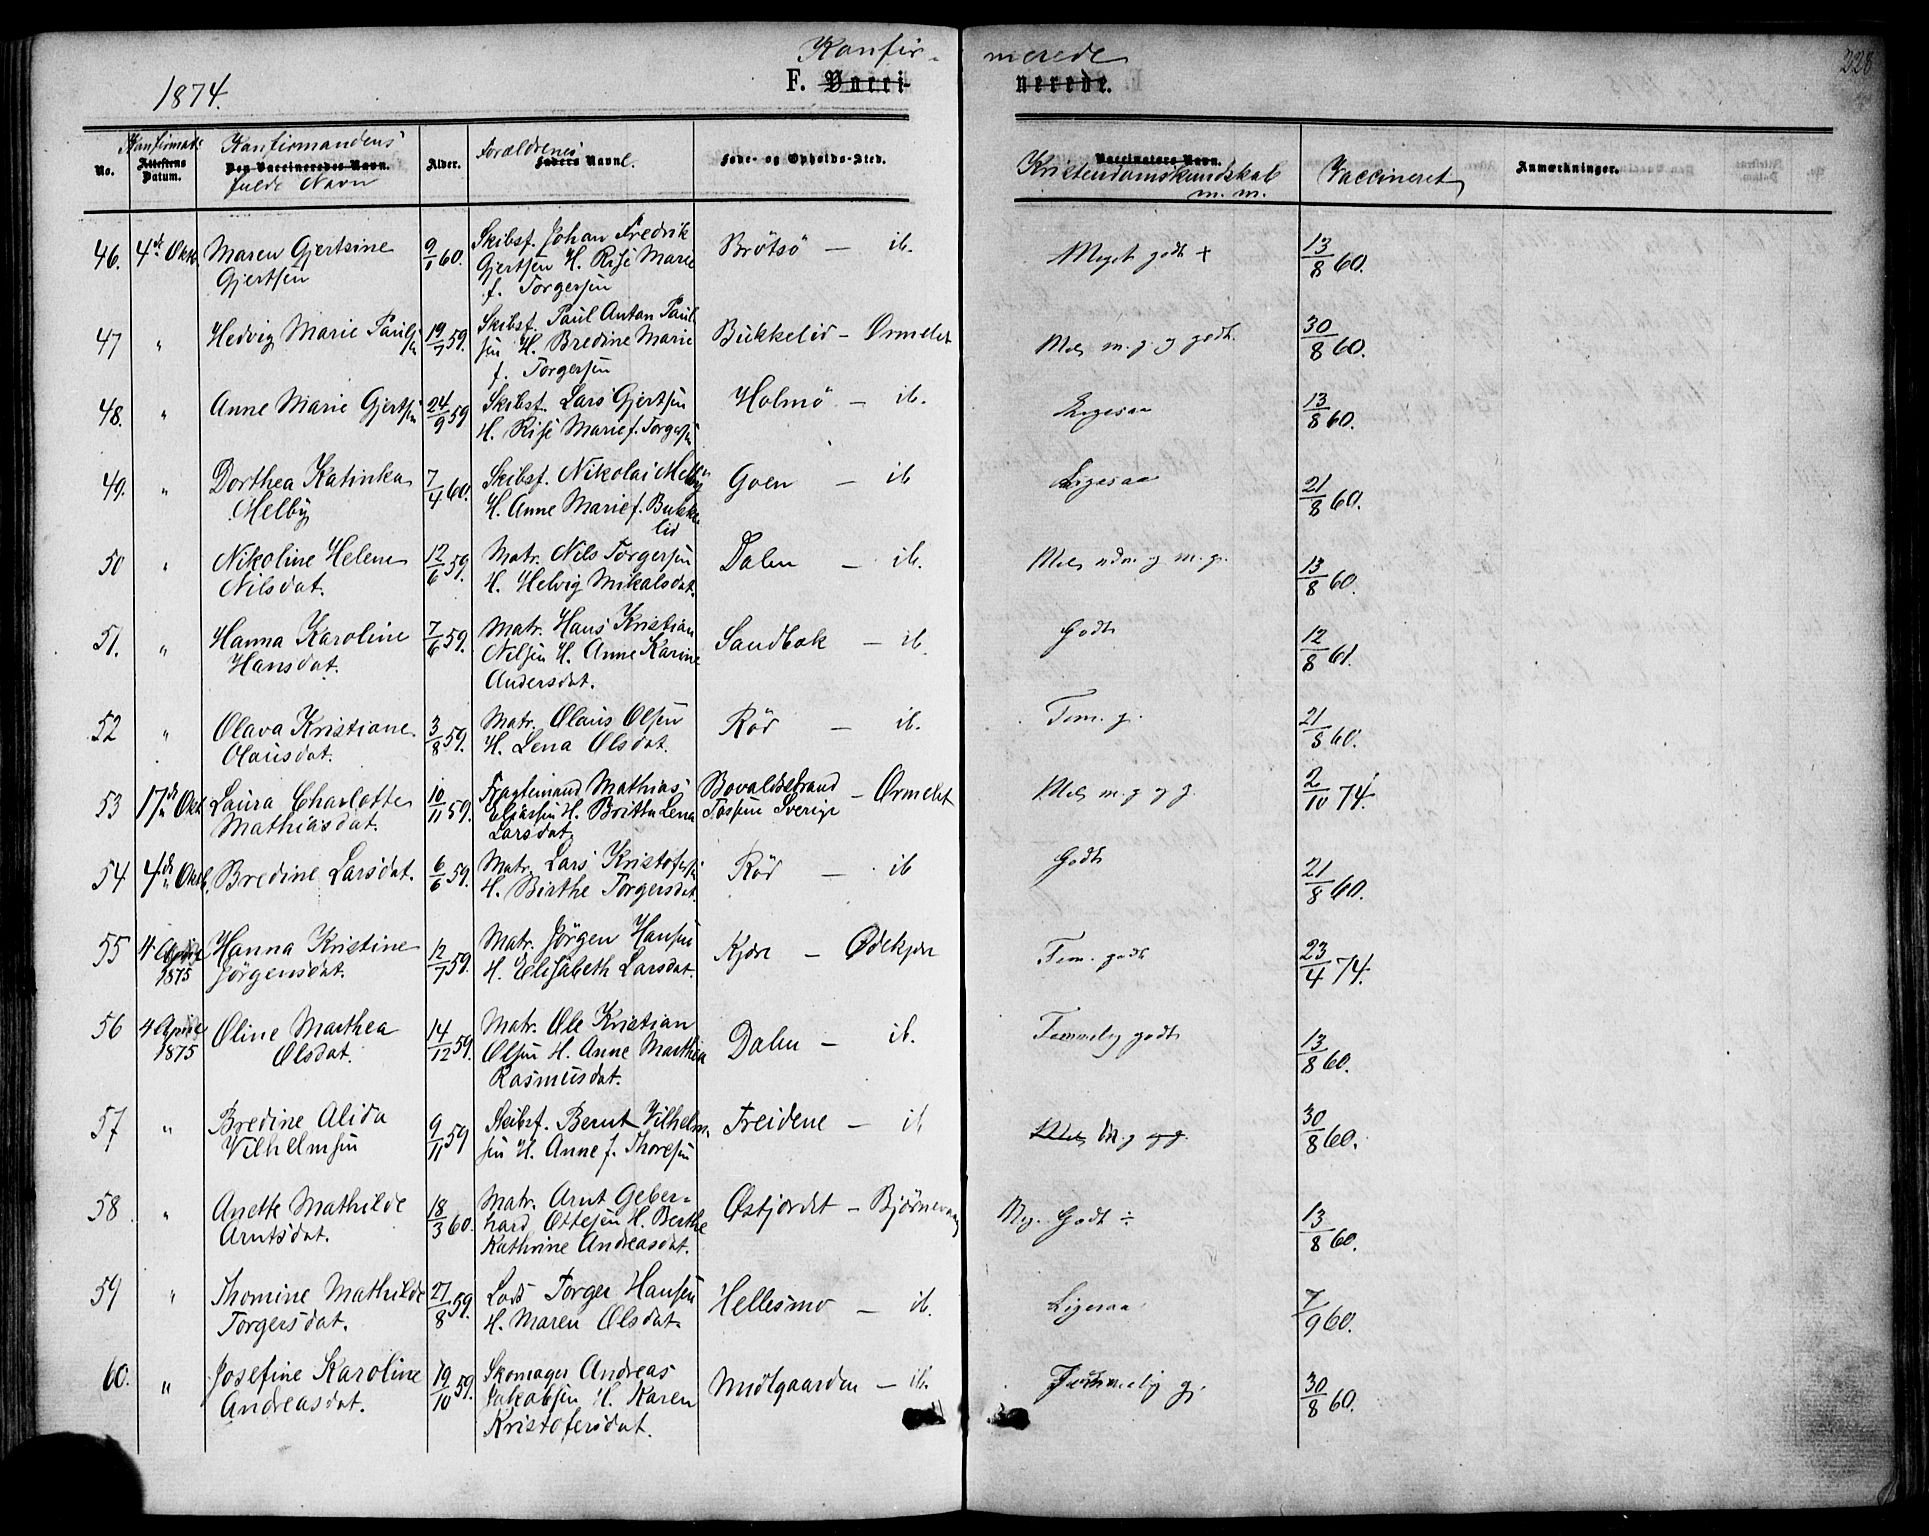 Konfir- merede
228
1874.
F. Vacci- nerede.
No.
Konfirmat:
Attestens Datum.
Konfirmandens
Den Vaccineredes Navn.
fulde Navn
Alder.
Forældrenes
Faders Navn.
Føde- og Opholds-Sted.
Vaccinators Navn.
Kristendomskundskab
m. m.
Vaccineret
Anmærkninger.
46. 4de Oktb. Maren Gjertsine 9/1 60. Skibsf. Johan Fredrik Brøtsø — ib. Meget godt + 13/8 60.
Gjertsen Gjertsen H. Rise Marie
f. Torgersen
47 " Hedvig Marie Paulsen 19/7 59. Skibsf. Paul Anton Paul- Bukkelid — Ormelet Mel. m. g. og godt. 30/8 60.
sen H. Bredine Marie
f. Torgersen
48. " Anne Marie Gjertsen 24/9 59 Skibsf. Lars Gjertsen Holmø — ib. Ligesaa 13/8 60.
H. Rise Marie f. Torgersen
49. " Dorthea Katinka 7/4 60. Skibsf. Nikolai Melby Goen — ib Ligesaa 21/8 60.
Melby H. Anne Marie f. Bukke-
lid
50 " Nikoline Helene 12/6 59. Matr. Nils Torgersen Dalen — ib. Mel. udm. og m. g. 13/8 60.
Nilsdat. H. Helvig Mikalsdat.
51. " Hanna Karoline 7/6 59. Matr. Hans Kristian Sandbæk — ib. Godt 12/8 61.
Hansdat. Nilsen H. Anne Karine
Andersdat.
52 " Olava Kristiane 3/8 59. Matr. Olaus Olsen Rød — ib. Tem. g. 21/8 60.
Olausdat. H. Lena Olsdat.
53 17de Okt. Laura Charlotte 10/11 59. Fragtemand Mathias Bovaldsstrand — Ormelet Mel. m. g. og g. 2/10 74.
Mathiasdat. Eliassen H. Britta Lena Tossene Sverige
Larsdat.
54 4de Oktb. Bredine Larsdat. 6/6 59. Matr. Lars Kristofersen Rød — ib Godt 21/8 60.
H. Birthe Torgersdat.
55 4 April Hanna Kristine 12/7 59. Matr. Jörgen Hansen Kjære — Ødekjær Tem. godt 23/4 74.
1875 Jörgensdat. H. Elisabeth Larsdat.
56 4 April Oline Marthea 14/12 59. Matr. Ole Kristian Dalen — ib. Temmelig godt 13/8 60.
1875 Olsdat. Olsen H. Anne Marthea
Rasmusdat.
57 " Bredine Alida 9/11 59 Skibsf. Bernt Vilhelm- Freidene — ib Mel. M. g og g. 30/8 60.
Vilhelmsen sen H. Anne f. Thoresen
58 " Anette Mathilde 18/3 60. Matr. Arnt Geber- Østjordet — Bjørnevaag Meg. Godt ÷ 13/8 60.
Arntsdat. hard Ottesen H. Berthe
Kathrine Andreasdat.
59 " Thomine Mathilde 21/8 59. Lods Torger Hansen Hellesmo — ib. Ligesaa 7/9 60.
Torgersdat. H. Maren Olsdat.
60. " Josefine Karoline 19/10 59. Skomager Andreas Midtgaarden — ib. Temmelig g. 30/8 60.
Andreasdat. Jakobsen H. Karen
Kristofersdat.